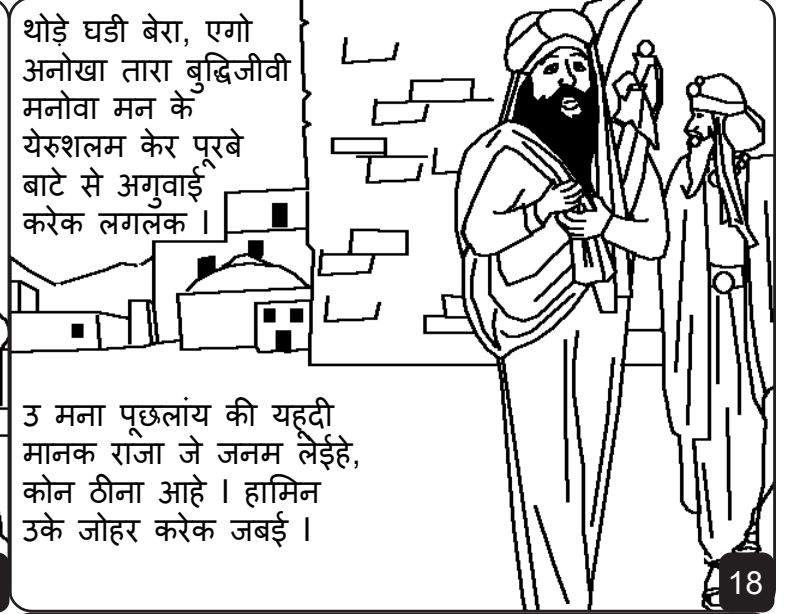 थोड़े घडी बेरा, एगो
अनोखा तारा बुद्धिजीवी
मनोवा मन के
येरुशलम केर पूरबे
बाटे से अगुवाई
करेक लगलक ।
उ मना पूछलांय की यहूदी
मानक राजा जे जनम लेईहे,
कोन ठीना आहे । हामिन
उके जोहर करेक जबई ।
18